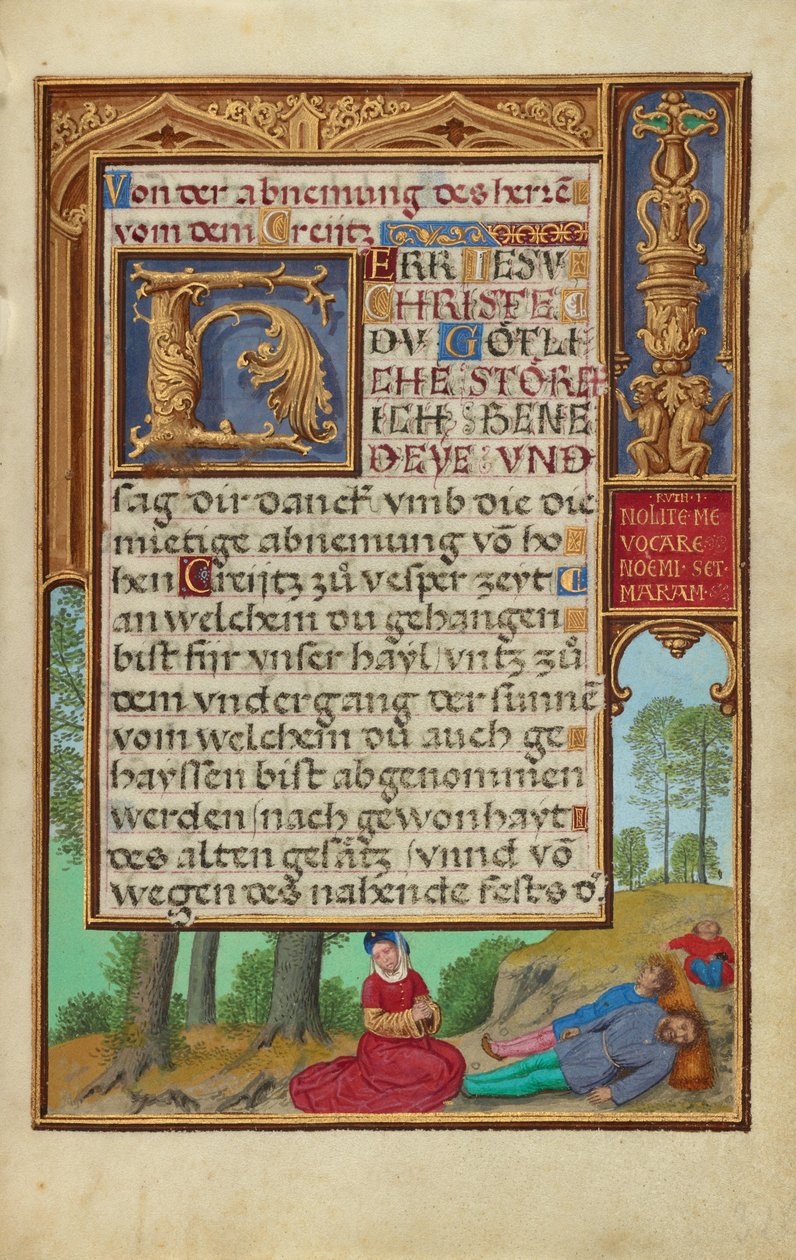 Von der abnemung des herrē
vom dem Creijtz
HERR IESV
CHRISTE
DV GÖTLI
CHE STÖRCK
ICH BENE
DEYE VND
sag dir danck vmb die die
mietige abnemung vō ho
hen Creijtz zů vesper zeyt
an welchem du gehangen
bist fijr vnser hayl/ vntz zů
dem vndergang der sunnē
vom welchem du auch ge
hayssen bist abgenommen
werden/ nach gewonhayt
des alten gesätz/ vnnd vō
wegen des nahende fests d
· RVTH · I ·
NOLITE · ME
VOCARE
NOEMI · SET ·
MARAM ·